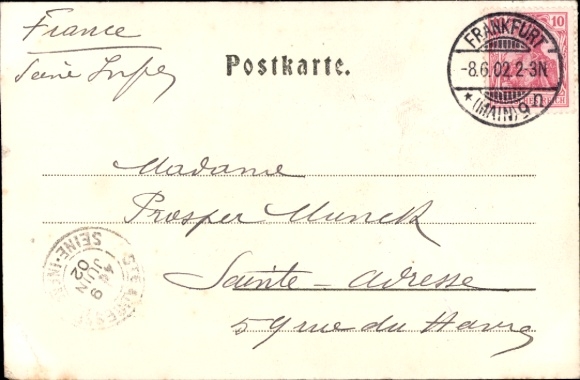 France
Seine Infre
Postkarte.
10
FRANKFURT
-8.6.02.2-3N
* (MAIN) 9 n.
Madame
Prosper Munck
Sainte-Adresse
59 rue du Havre
STE ADRESSE
4E 9
JUIN
02
SEINE-INFRE